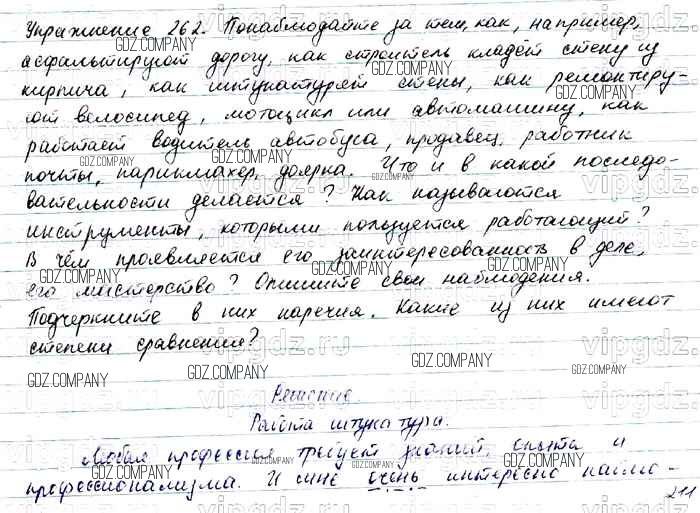 Упражнение 262. Понаблюдайте за тем, как, например,
асфальтируют дорогу, как строитель кладёт стену из
кирпича, как штукатурят стены, как ремонтиру-
ют велосипед, мотоцикл или автомашину, как
работает водитель автобуса, продавец, работник
почты, парикмахер, доярка. Что и в какой последо-
вательности делается? Как называются
инструменты, которыми пользуется работающий?
В чём проявляется его заинтересованность в деле,
его мастерство? Опишите свои наблюдения.
Подчеркните в них наречия. Какие из них имеют
степени сравнения?
Решение.
Работа штукатура.
Любая профессия требует знаний, опыта и
профессионализма. И мне очень интересно наблю-
211
GDZ.COMPANY
vipgdz.ru